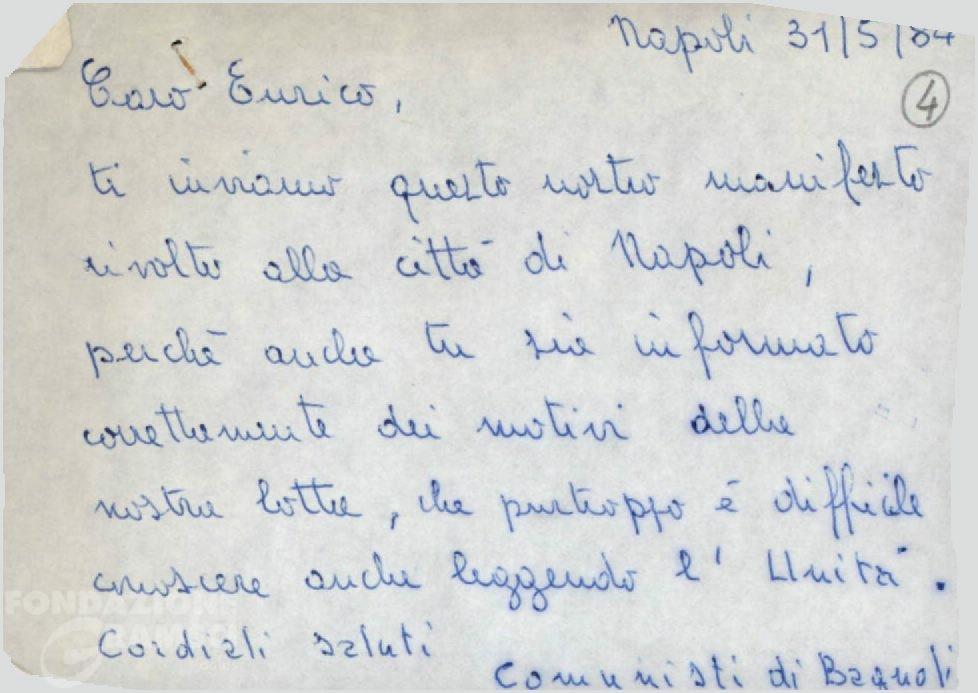 Napoli 31/5/84
4
Caro Enrico,
ti inviamo questo nostro manifesto
rivolto alla città di Napoli,
perchè anche tu sia informato
correttamente dei motivi della
nostra lotta, che purtroppo è difficile
conoscere anche leggendo l' Unità.
FONDAZIONE
GRAMSCI
Cordiali saluti
Comunisti di Bagnoli